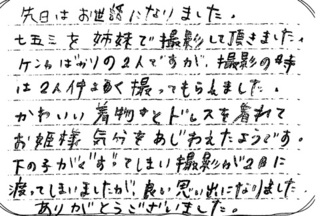 先日はお世話になりました。
七五三を姉妹で撮影して頂きました。
ケンカばかりの2人ですが、撮影の時
は2人仲よく撮ってもらえました。
かわいい着物やドレスを着れて
お姫様気分をあじわえたようです。
下の子がぐずってしまい撮影が2日に
渡ってしまいましたが、良い思い出になりました。
ありがとうございました。